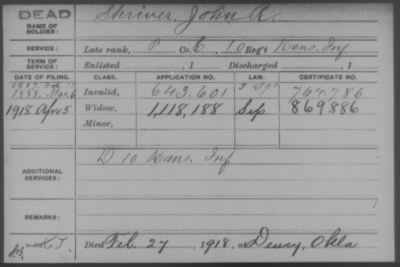 DEAD
NAME OF SOLDIER:
Shriver, John A.
SERVICE:
Late rank, P Co. C, 10 Reg't Kans. Inf
TERM OF SERVICE:
Enlisted , 1 Discharged , 1
DATE OF FILING. CLASS. APPLICATION NO. LAW. CERTIFICATE NO.
1888, Mar 6 Invalid, 643,601 764,786
1918 Apr 5 Widow, 1,118,188 Sep 869886
Minor,
ADDITIONAL SERVICES:
D 10 Kans. Inf
REMARKS:
Died Feb. 27, 1918, at Dewey, Okla